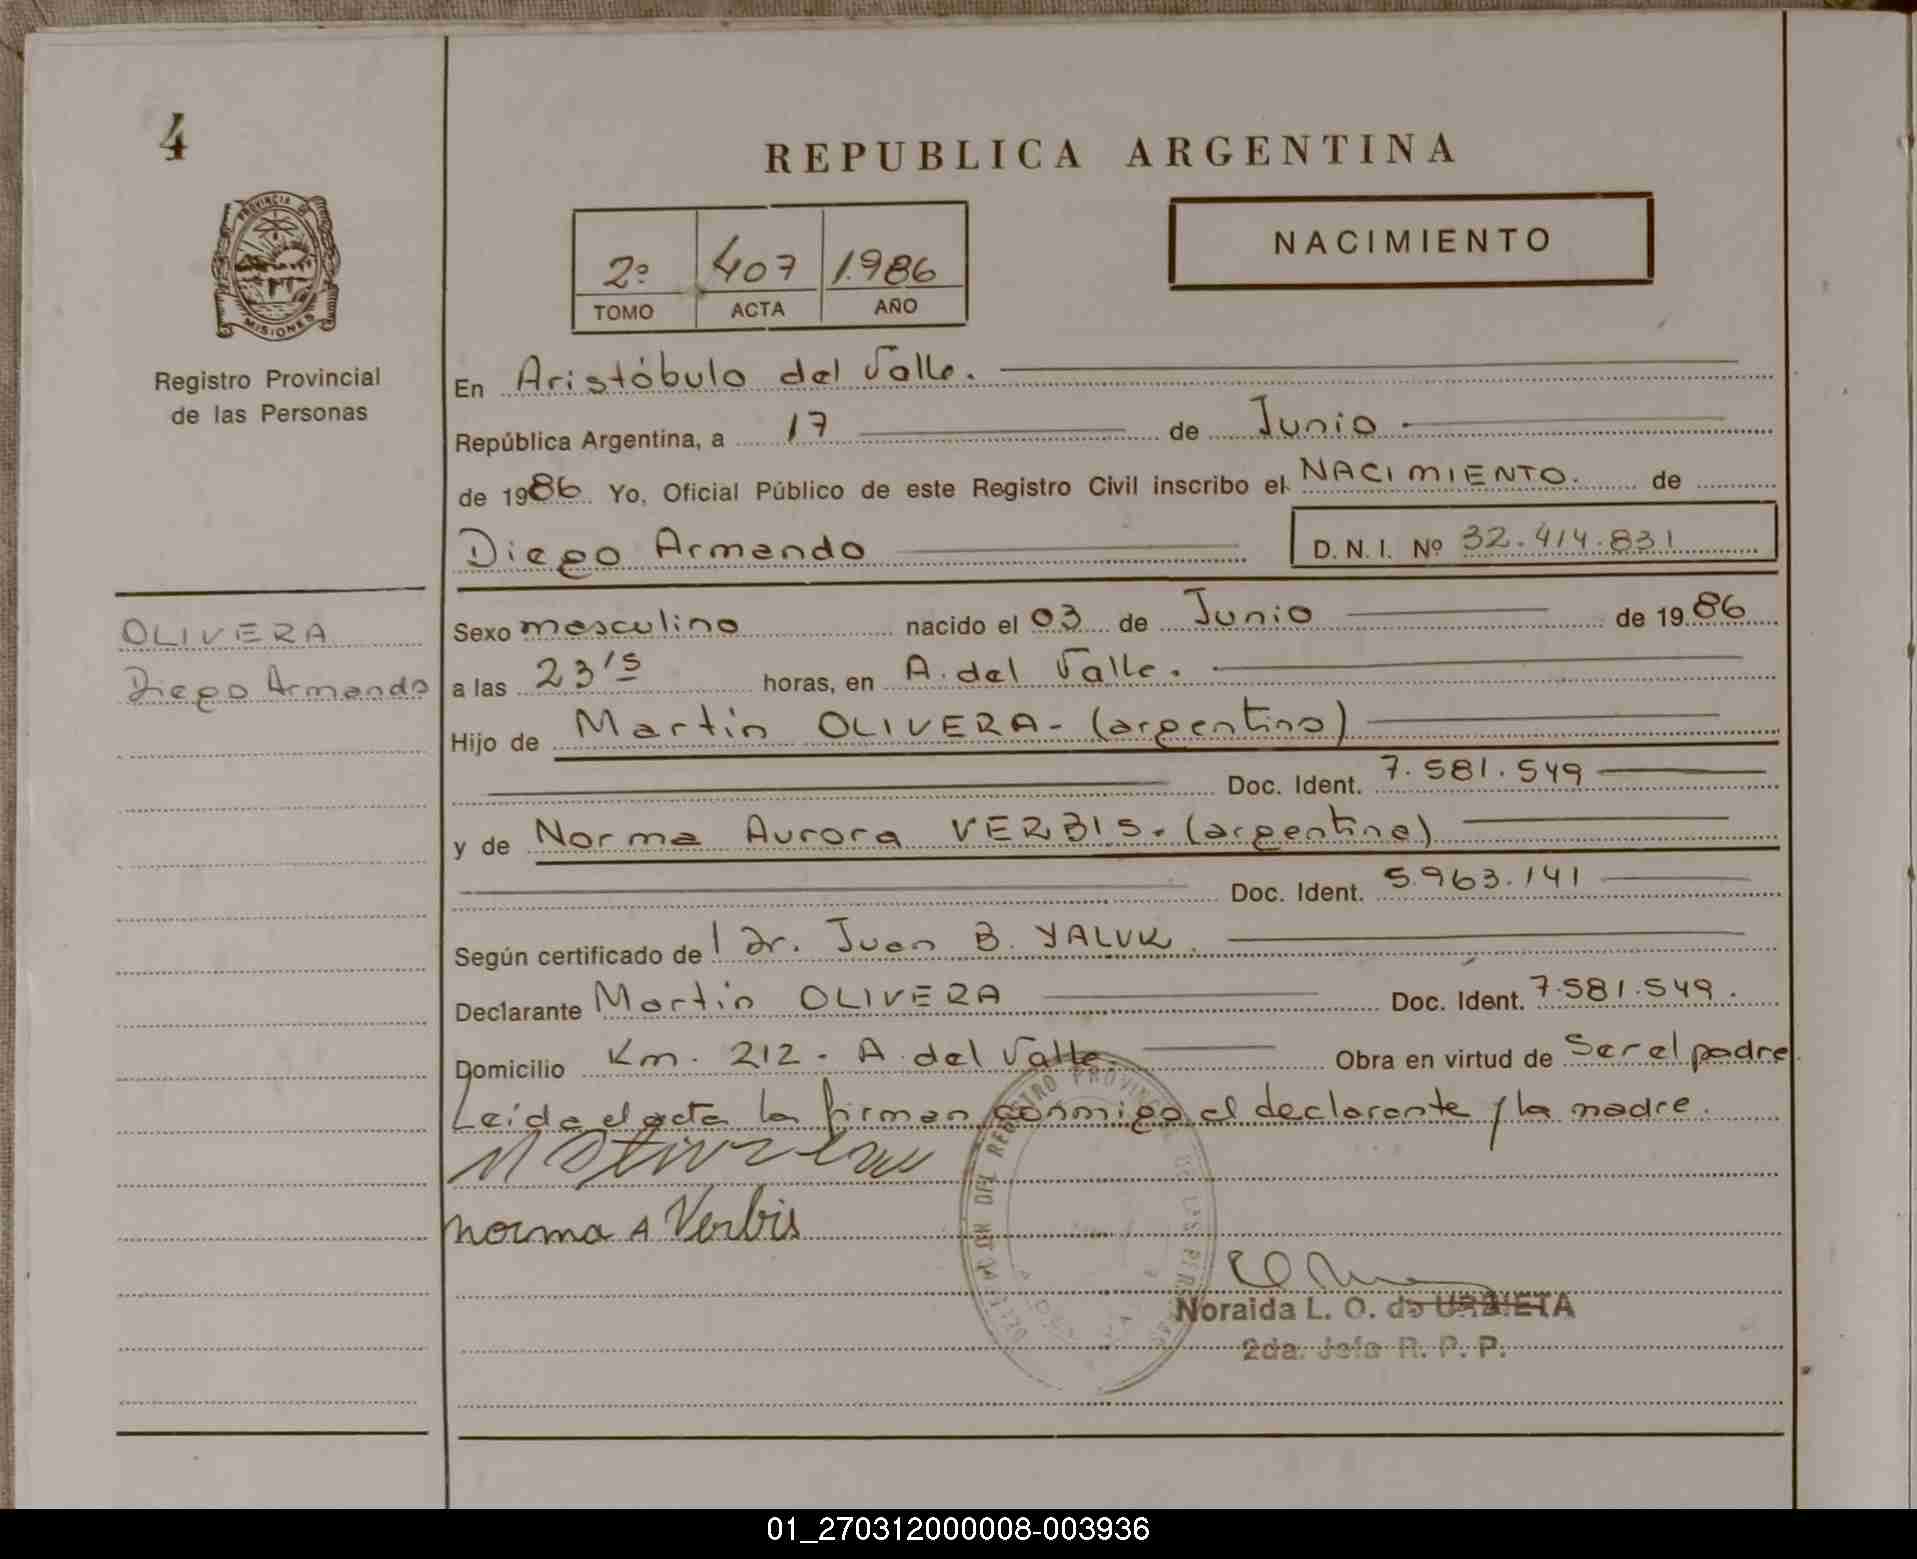 4
REPUBLICA ARGENTINA
PROVINCIA DE
MISIONES
Registro Provincial
de las Personas
2º 407 1.986
TOMO ACTA AÑO
NACIMIENTO
En Aristóbulo del Valle.
República Argentina, a 17 de Junio
de 1986 Yo, Oficial Público de este Registro Civil inscribo el NACIMIENTO. de
Diego Armando D. N. I. Nº 32.414.831
OLIVERA
Diego Armando
Sexo masculino nacido el 03 de Junio de 19 86
a las 23's horas, en A. del Valle.
Hijo de Martin OLIVERA- (argentino)
Doc. Ident. 7.581.549
y de Norma Aurora VERBIS. (argentina)
Doc. Ident. 5.963.141
Según certificado de l Dr. Juan B. YALUK.
Declarante Martin OLIVERA Doc. Ident. 7.581.549.
Domicilio Km. 212. A. del Valle. Obra en virtud de Ser el padre.
Leida el acta la firman conmigo el declarante y la madre.
norma A Verbis
DEL REGISTRO PROVINCIAL DE LAS PERSONAS
Noraida L. O. de URBIETA
2da. Jefa R. P. P.
01_270312000008-003936